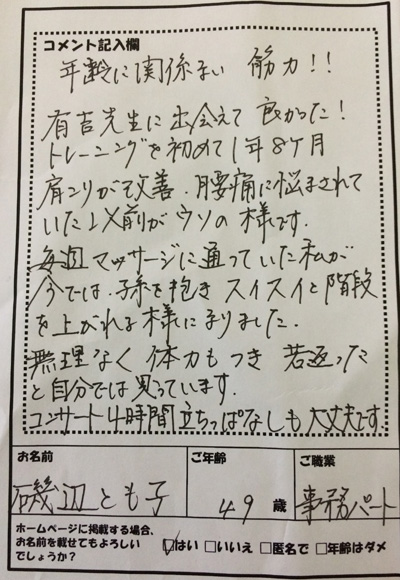 コメント記入欄
年齢に関係ない 筋力!!
有吉先生に出会えて良かった!
トレーニングを初めて1年8ヶ月
肩こりが改善、腰痛に悩まされて
いた以前がウソの様です.
毎週マッサージに通っていた私が
今では、子孫を抱きスイスイと階段
を上がれる様になりました.
無理なく体力もつき若返った
と自分では思っています.
コンサート4時間立ちっぱなしも大丈夫です.
お名前 ご年齢 ご職業
磯辺とも子 49歳 事務パート
ホームページに掲載する場合、
お名前を載せてもよろしい
でしょうか?
☑はい □いいえ □匿名で □年齢はダメ